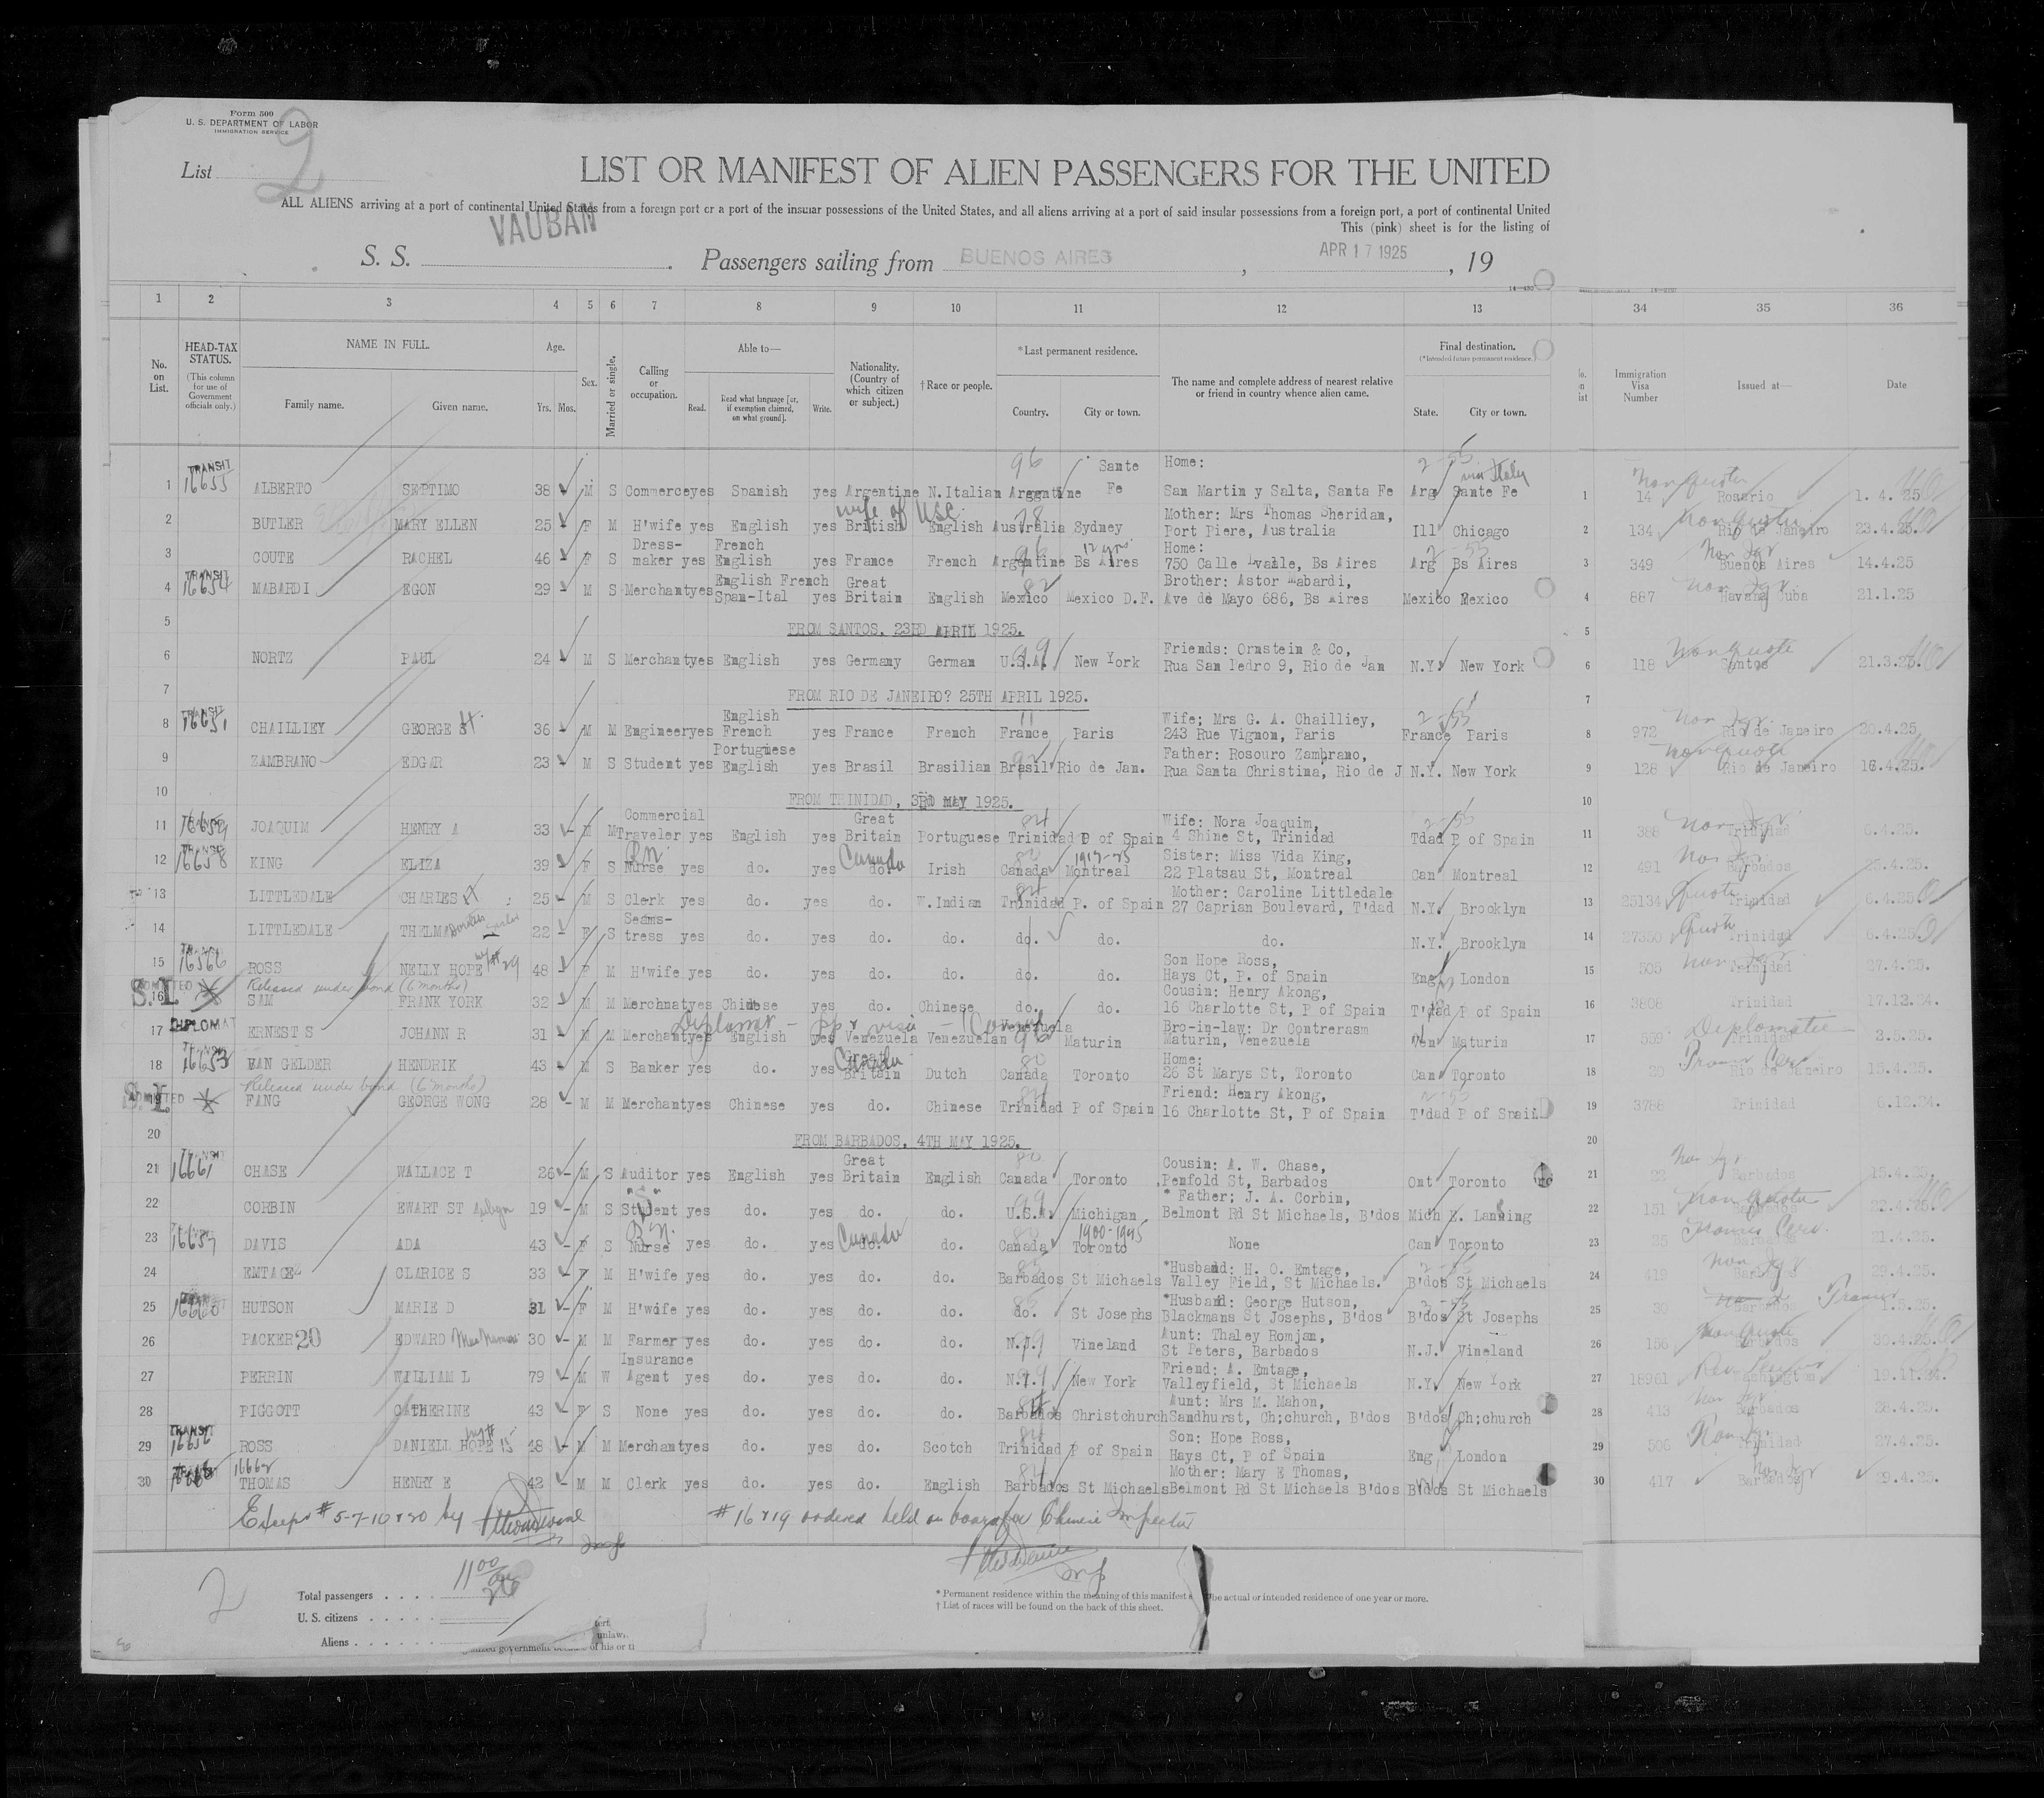 Form 500
U. S. DEPARTMENT OF LABOR
IMMIGRATION SERVICE
List 2
LIST OR MANIFEST OF ALIEN PASSENGERS FOR THE UNITED
ALL ALIENS arriving at a port of continental United States from a foreign port or a port of the insular possessions of the United States, and all aliens arriving at a port of said insular possessions from a foreign port, a port of continental United
This (pink) sheet is for the listing of
S. S. VAUBAN Passengers sailing from BUENOS AIRES, APR 17 1925, 19
1 2 3 4 5 6 7 8 9 10 11 12 13 34 35 36
No. on List. HEAD-TAX STATUS. (This column for use of Government officials only.) NAME IN FULL. Family name. Given name. Age. Yrs. Mos. Sex. Married or single. Calling or occupation. Able to— Read. Read what language [or, if exemption claimed, on what ground]. Write. Nationality. (Country of which citizen or subject.) † Race or people. * Last permanent residence. Country. City or town. The name and complete address of nearest relative or friend in country whence alien came. Final destination. (* Intended future permanent residence.) State. City or town. Immigration Visa Number Issued at— Date
1 TRANSIT 16655 ALBERTO SEPTIMO 38 M S Commerce yes Spanish yes Argentine N.Italian Argentine Sante Fe Home: San Martin y Salta, Santa Fe Arg Sante Fe via Italy 1 14 Non Quota Rosario 1. 4. 25
2 BUTLER MARY ELLEN 25 F M H'wife yes English yes British wife of USC English Australia Sydney Mother: Mrs Thomas Sheridan, Port Piere, Australia Ill Chicago 2 134 Non Quota Rio de Janeiro 23.4.25.
3 COUTE RACHEL 46 F S Dress-maker yes French English yes France French Argentine Bs Aires 12 yrs Home: 750 Calle Lvalle, Bs Aires Arg Bs Aires 3 349 Buenos Aires 14.4.25
4 TRANSIT 16654 MABARDI EGON 29 M S Merchant yes English French Span-Ital yes Great Britain English Mexico Mexico D.F. Brother: Astor Mabardi, Ave de Mayo 686, Bs Aires Mexico Mexico 4 887 Havana Cuba 21.1.25
5 FROM SANTOS, 23RD APRIL 1925. 5
6 NORTZ PAUL 24 M S Merchant yes English yes Germany German U.S.A. New York Friends: Ornstein & Co, Rua San Pedro 9, Rio de Jan N.Y. New York 6 118 Non Quota Santos 21.3.25.
7 FROM RIO DE JANEIRO? 25TH APRIL 1925. 7
8 TRANSIT 16651 CHAILLIEY GEORGE 36 M M Engineer yes English French yes France French France Paris Wife; Mrs G. A. Chailliey, 243 Rue Vignon, Paris France Paris 8 972 Rio de Janeiro 20.4.25.
9 ZAMBRANO EDGAR 23 M S Student yes Portuguese English yes Brasil Brasilian Brasil Rio de Jan. Father: Rosouro Zambrano, Rua Santa Christina, Rio de J N.Y. New York 9 128 Non Quota Rio de Janeiro 16.4.25.
10 FROM TRINIDAD, 3RD MAY 1925. 10
11 TRANSIT 16659 JOAQUIM HENRY A 33 M M Commercial Traveler yes English yes Great Britain Portuguese Trinidad P of Spain Wife: Nora Joaquim, 4 Shine St, Trinidad Tdad P of Spain 11 388 Trinidad 6.4.25.
12 TRANSIT 16658 KING ELIZA 39 F S Nurse RN yes do. yes do. Canada Irish Canada Montreal Sister: Miss Vida King, 22 Platsau St, Montreal Can Montreal 12 491 Barbados 25.4.25.
13 LITTLEDALE CHARLES 25 M S Clerk yes do. yes do. W.Indian Trinidad P. of Spain Mother: Caroline Littledale 27 Caprian Boulevard, T'dad N.Y. Brooklyn 13 25134 Quota Trinidad 6.4.25
14 LITTLEDALE THELMA 22 F S Seams-tress yes do. yes do. do. do. do. do. N.Y. Brooklyn 14 27350 Quota Trinidad 6.4.25
15 ROSS NELLY HOPE w/# 29 48 F M H'wife yes do. yes do. do. do. do. Son Hope Ross, Hays Ct, P. of Spain Eng London 15 505 Trinidad 27.4.25.
Released under bond (6 months)
S.I. ADMITTED 16 SAM FRANK YORK 32 M M Merchnat yes Chinese yes do. Chinese do. do. Cousin: Henry Akong, 16 Charlotte St, P of Spain T'dad P of Spain 16 3808 Trinidad 17.12.24.
17 DIPLOMAT ERNEST S JOHANN R 31 M M Merchant yes English yes Venezuela Venezuelan Venezuela Maturin Bro-in-law: Dr Contrerasm Maturin, Venezuela Ven Maturin 17 559 Diplomatic Trinidad 3.5.25.
18 TRANSIT 16653 VAN GELDER HENDRIK 43 M S Banker yes do. yes Great Britain Canada Dutch Canada Toronto Home: 26 St Marys St, Toronto Can Toronto 18 20 Rio de Janeiro 15.4.25.
Released under bond (6 months)
S.I. ADMITTED FANG GEORGE WONG 28 M M Merchant yes Chinese yes do. Chinese Trinidad P of Spain Friend: Henry Akong, 16 Charlotte St, P of Spain T'dad P of Spain 19 3788 Trinidad 6.12.24.
20 FROM BARBADOS, 4TH MAY 1925. 20
21 TRANSIT 16661 CHASE WALLACE T 26 M S Auditor yes English yes Great Britain English Canada Toronto Cousin: A. W. Chase, Penfold St, Barbados Ont Toronto 21 22 Barbados 15.4.25.
22 CORBIN EWART ST 19 M S Student "S" yes do. yes do. do. U.S.A. Michigan * Father; J. A. Corbin, Belmont Rd St Michaels, B'dos Mich E. Lansing 22 151 Non Quota Barbados 22.4.25.
23 16657 DAVIS ADA 43 F S Nurse R.N. yes do. yes do. Canada do. Canada Toronto None Can Toronto 23 25 Barbados 21.4.25.
24 EMTAGE CLARICE S 33 F M H'wife yes do. yes do. do. Barbados St Michaels *Husband: H. O. Emtage, Valley Field, St Michaels. B'dos St Michaels 24 419 Barbados 29.4.25.
25 TRANSIT 16660 HUTSON MARIE D 31 F M H'wife yes do. yes do. do. do. St Josephs *Husband: George Hutson, Blackmans St Josephs, B'dos B'dos St Josephs 25 30 Barbados 1.5.25.
26 PACKER 20 EDWARD 30 M M Farmer yes do. yes do. do. N.J. Vineland Aunt: Thaley Romjan, St Peters, Barbados N.J. Vineland 26 156 Non Quota Barbados 30.4.25.
27 PERRIN WILLIAM L 79 M W Insurance Agent yes do. yes do. do. N.Y. New York Friend: A. Emtage, Valleyfield, St Michaels N.Y. New York 27 18961 Washington 19.11.24.
28 PIGGOTT CATHERINE 43 F S None yes do. yes do. do. Barbados Christchurch Aunt: Mrs M. Mahon, Sandhurst, Ch;church, B'dos B'dos Ch;church 28 413 Barbados 28.4.25.
29 TRANSIT 16656 ROSS DANIELL HOPE 15 48 M M Merchant yes do. yes do. Scotch Trinidad P of Spain Son: Hope Ross, Hays Ct, P of Spain Eng London 29 506 Trinidad 27.4.25.
30 16662 THOMAS HENRY E 42 M M Clerk yes do. yes do. English Barbados St Michaels Mother: Mary E Thomas, Belmont Rd St Michaels B'dos B'dos St Michaels 30 417 Barbados 29.4.25.
Except # 5-7-10 & 20 by
# 16 & 19 ordered held on board for Chinese Inspector
2
Total passengers
U. S. citizens
Aliens
* Permanent residence within the meaning of this manifest
the actual or intended residence of one year or more.
† List of races will be found on the back of this sheet.